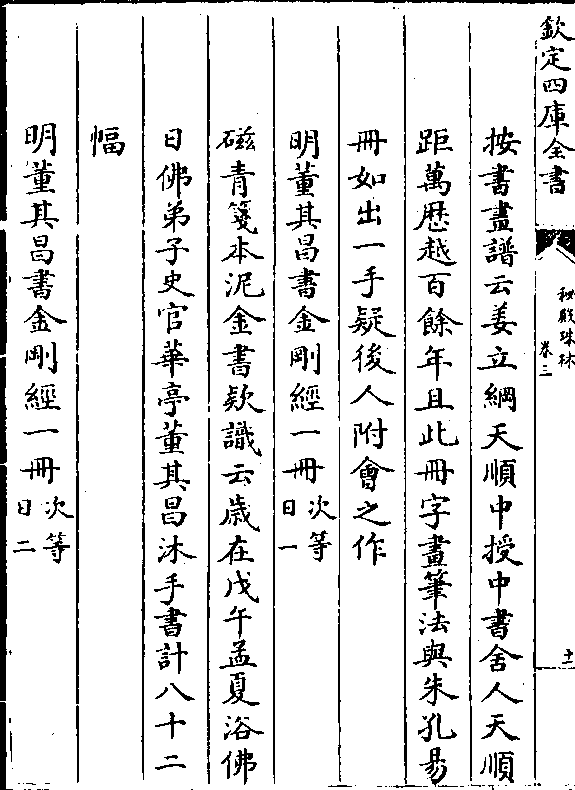 欽定四庫全書
秘殿珠林
卷三
十一
按書畫譜云姜立綱天順中授中書舍人天順
距萬歴越百餘年且此冊字畫筆法與朱孔易
冊如出一手疑後人附會之作
明董其昌書金剛經一冊次等
日一
磁青箋本泥金書欵識云嵗在戊午孟夏浴佛
日佛弟子史官華亭董其昌沐手書計八十二
幅
明董其昌書金剛經一冊次等
日二